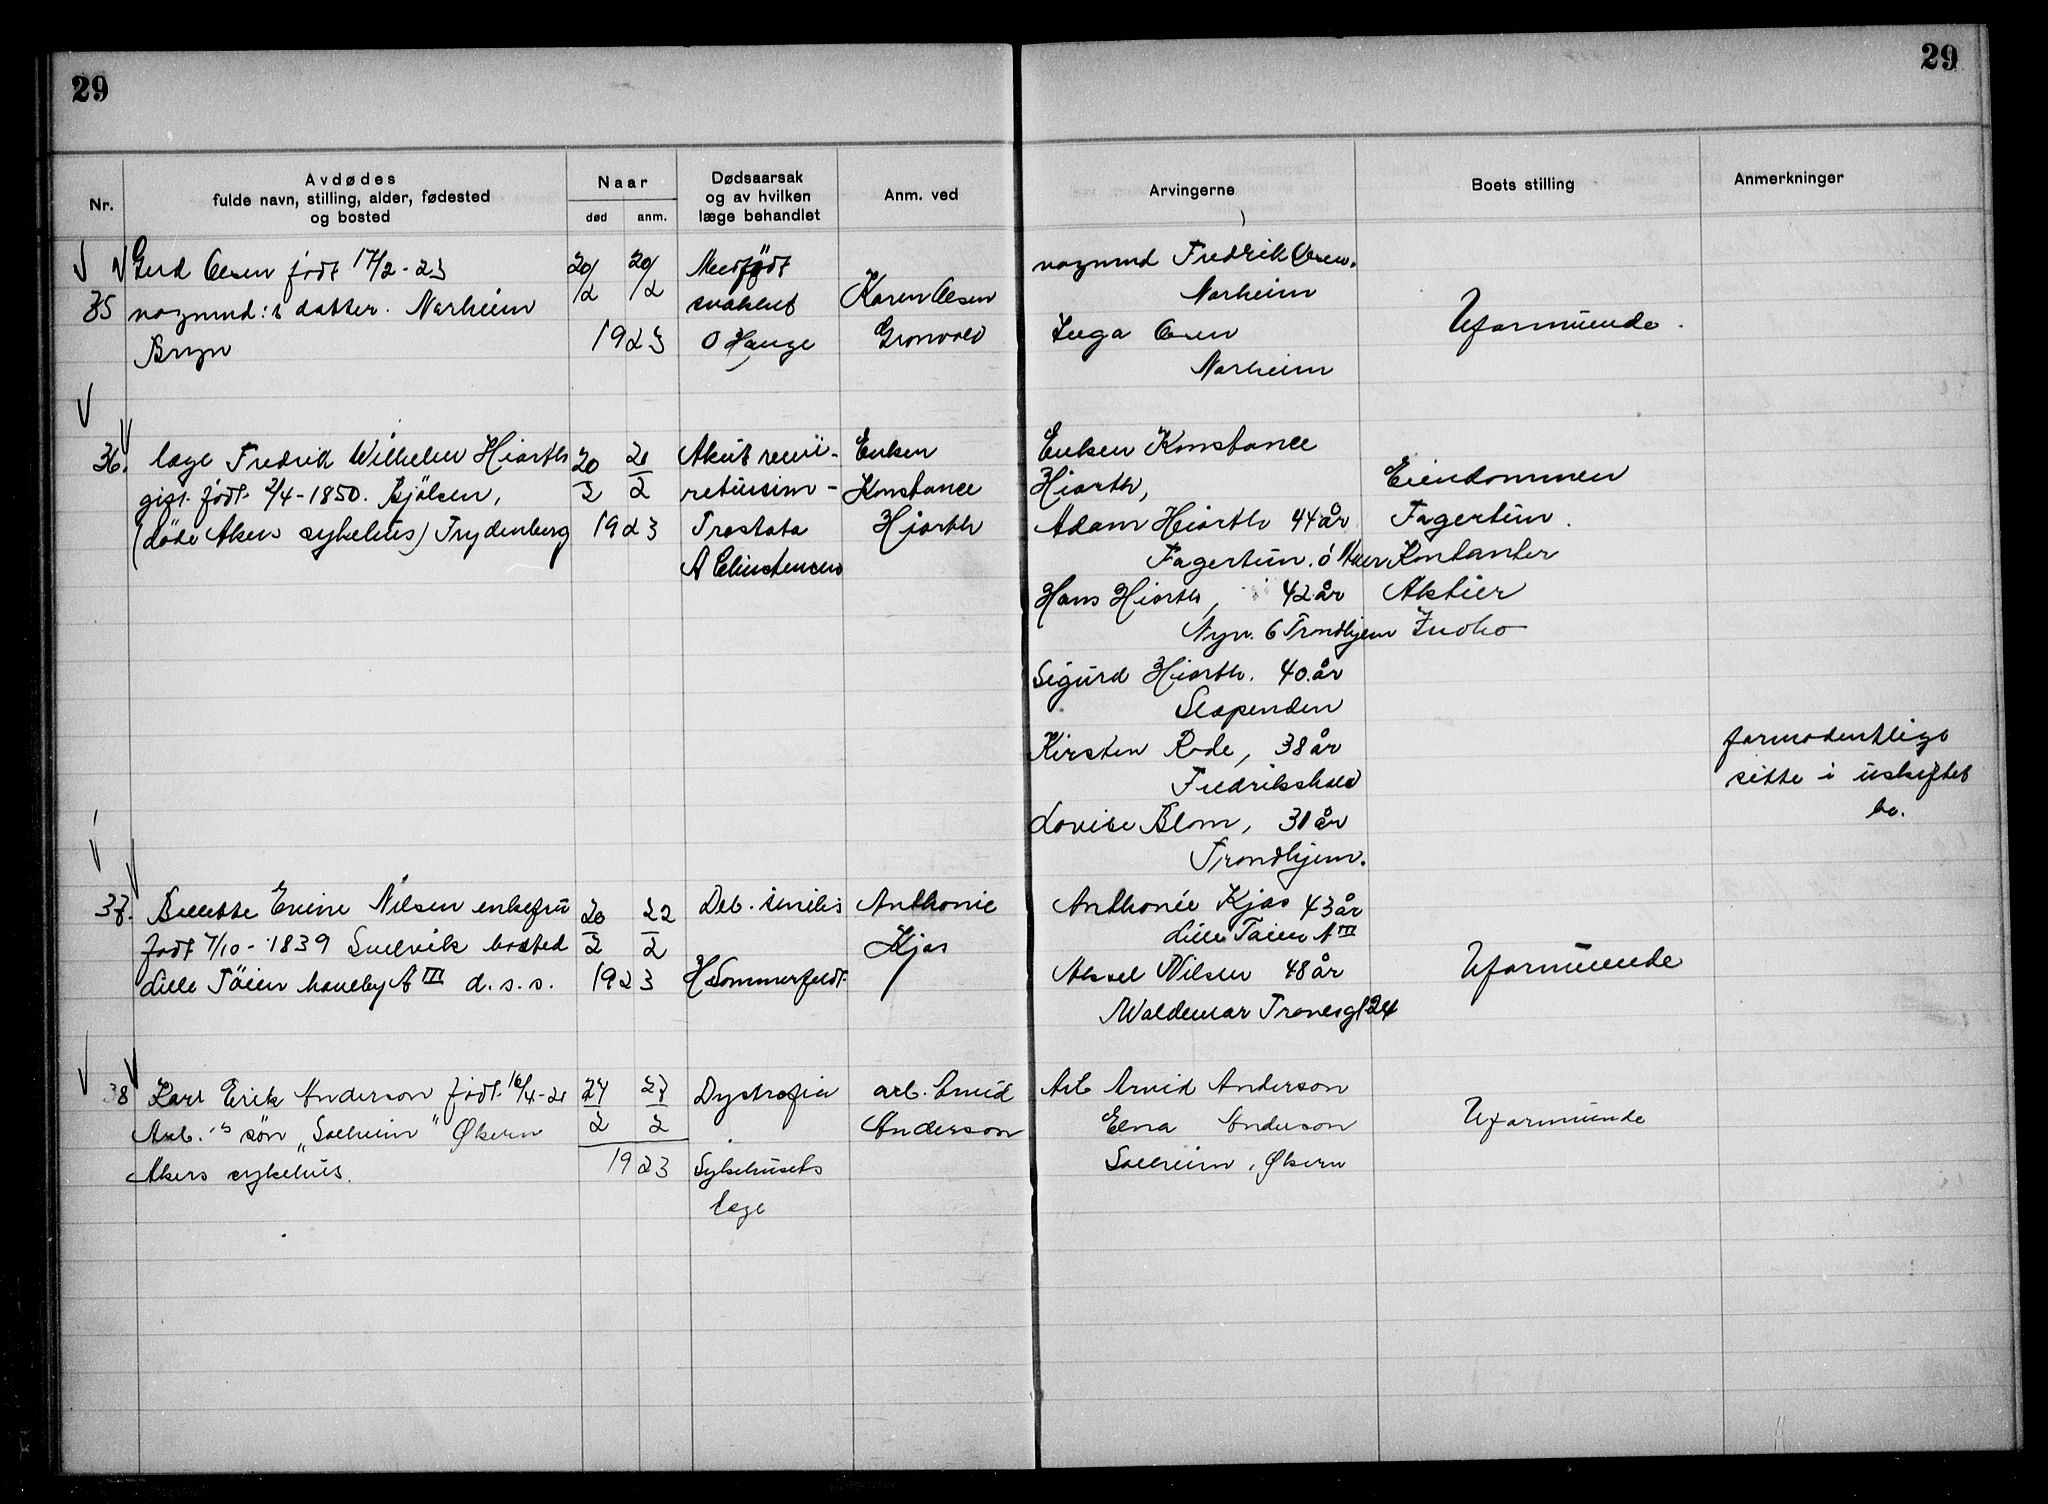 29
29
Nr.
Avdødes
fulde navn, stilling, alder, fødested
og bosted
Naar
død
anm.
Dødsaarsak
og av hvilken
læge behandlet
Anm. ved
Arvingerne
Boets stilling
Anmerkninger
35
Gerd Olsen født 17/2-23
vognmd:s datter. Norheim
Bryn
20/2 20/2
1923
Medfødt
svakhet
O Hauge
Karen Olsen
Gronvold
vognmd Fredrik Olsen.
Norheim
Inga Olsen
Norheim
Uformuende.
36.
læge Fredrik Wilhelm Hiorth
gift. født. 2/4-1850. Bjølsen,
(døde Akers sykehus) Frydenberg
20/2 21/2
1923
Akut
Prostata
A Christensen
Enken
Konstance
Hjorth
Enken Konstance
Hiorth,
Adam Hiorth 44 år
Fagertun.
Hans Hiorth, 42 år
6 Trondhjem
Sigurd Hiorth. 40 år
Slependen
Kirsten Rode, 38 år
Fredrikshald
Lovise Blom, 31 år
Trondhjem.
Eiendommen
Fagertun.
Kontanter
Aktier
Indbo
formodentlige
sitte i uskiftet
bo.
37.
Evine Nilsen enkefru
født 7/10-1839 Svelvik bosted
Lille Tøien haveby A III d.s.s.
20/2 22/2
1923
Deb. senilis
H Sommerfeldt.
Anthonie
Kjos
Anthonie Kjos 43 år
Lille Tøien A III
Aksel Nilsen 48 år
Waldemar Tranesgt 24
Uformuende
38
Karl Erik Anderson født. 16/4-21
Arb.'s søn „Solheim" Økern
Akers sykehus.
24/2 27/2
1923
Dystrofia
Sykehusets
læge
arb. Arvid
Anderson
Arb Arvid Anderson
Elna Anderson
Solheim, Økern
Uformuende